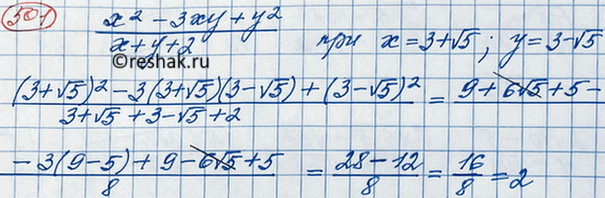 501 (x² - 3xy + y²)/(x+y+2) при x=3+√5; y=3-√5
reshak.ru
((3+√5)² - 3(3+√5)(3-√5) + (3-√5)²)/(3+√5+3-√5+2) = 9+6√5+5-
-3(9-5)+9-6√5+5/8 = (28-12)/8 = 16/8 = 2